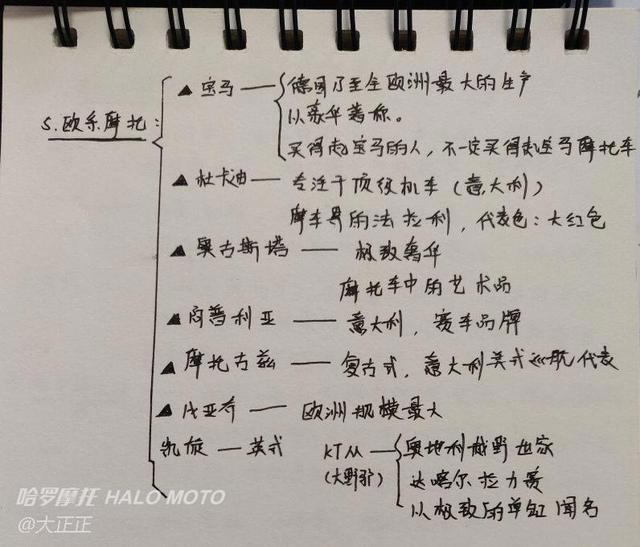 5.欧系摩托：
▲宝马——德国乃至全欧洲最大的生产
以豪华著称。
买得起宝马的人，不一定买得起宝马摩托车
▲杜卡迪——专注于顶级机车（意大利）
摩车界的法拉利，代表色：大红色
▲奥古斯塔——极致奢华
摩托车中的艺术品
▲阿普利亚——意大利，赛车品牌
▲摩托古兹——复古式，意大利美式巡航代表
▲比亚乔——欧洲规模最大
凯旋—英式 KTM——奥地利越野世家
(大野驴) 达喀尔拉力赛
以极致的单缸闻名
哈罗摩托 HALO MOTO
@大正正